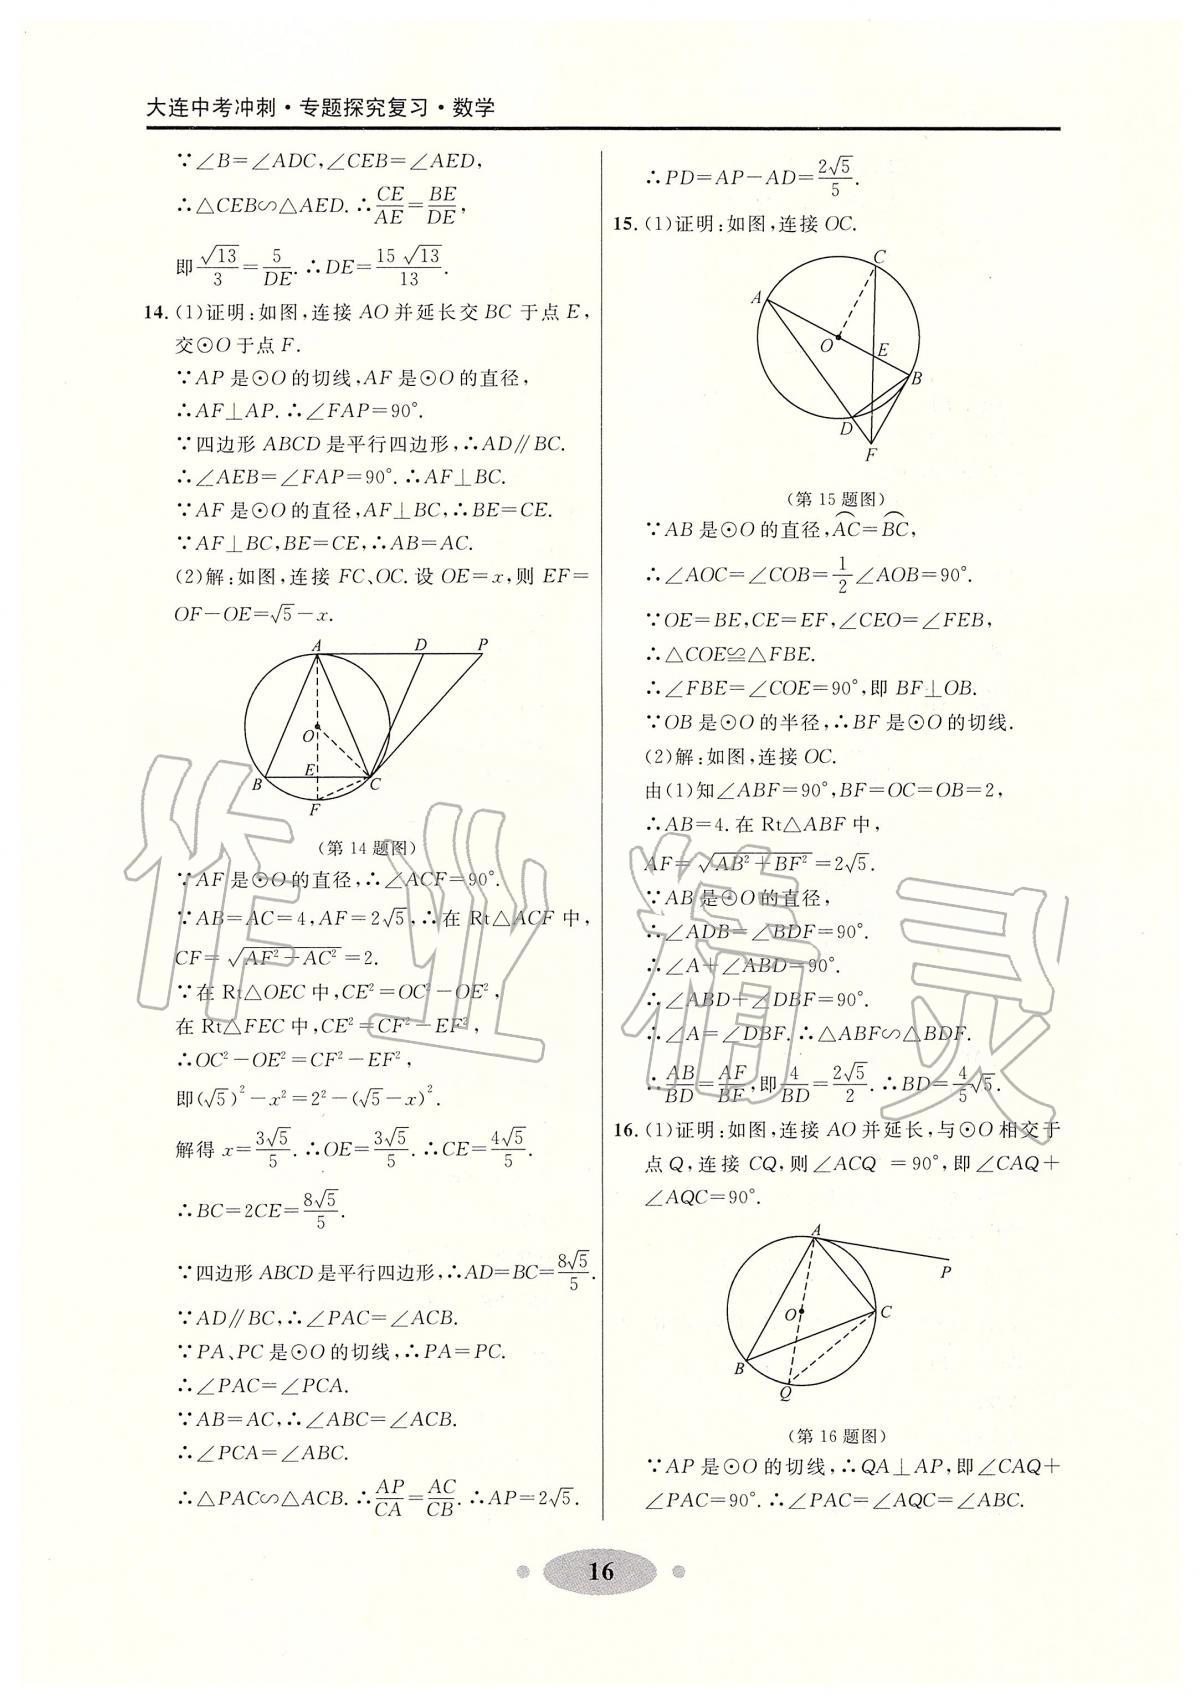 大连中考冲刺·专题探究复习·数学
∵∠B=∠ADC,∠CEB=∠AED,
∴△CEB∽△AED.∴CE/AE=BE/DE,
即√13/3=5/DE.∴DE=15√13/13.
14.(1)证明:如图,连接 AO 并延长交 BC 于点 E,
交⊙O 于点 F.
∵AP 是⊙O 的切线,AF 是⊙O 的直径,
∴AF⊥AP.∴∠FAP=90°.
∵四边形 ABCD 是平行四边形,∴AD∥BC.
∴∠AEB=∠FAP=90°.∴AF⊥BC.
∵AF 是⊙O 的直径,AF⊥BC,∴BE=CE.
∵AF⊥BC,BE=CE,∴AB=AC.
(2)解:如图,连接 FC、OC. 设 OE=x,则 EF=
OF-OE=√5-x.
A D P
O
B E C
F
(第 14 题图)
∵AF 是⊙O 的直径,∴∠ACF=90°.
∵AB=AC=4,AF=2√5,∴在 Rt△ACF 中,
CF=√(AF²-AC²)=2.
∵在 Rt△OEC 中,CE²=OC²-OE²,
在 Rt△FEC 中,CE²=CF²-EF²,
∴OC²-OE²=CF²-EF²,
即(√5)²-x²=2²-(√5-x)².
解得 x=3√5/5.∴OE=3√5/5.∴CE=4√5/5.
∴BC=2CE=8√5/5.
∵四边形 ABCD 是平行四边形,∴AD=BC=8√5/5.
∵AD∥BC,∴∠PAC=∠ACB.
∵PA、PC 是⊙O 的切线,∴PA=PC.
∴∠PAC=∠PCA.
∵AB=AC,∴∠ABC=∠ACB.
∴∠PCA=∠ABC.
∴△PAC∽△ACB.∴AP/CA=AC/CB.∴AP=2√5.
∴PD=AP-AD=2√5/5.
15.(1)证明:如图,连接 OC.
C
A
O E
B
D
F
(第 15 题图)
∵AB 是⊙O 的直径,A͡C=B͡C,
∴∠AOC=∠COB=1/2∠AOB=90°.
∵OE=BE,CE=EF,∠CEO=∠FEB,
∴△COE≌△FBE.
∴∠FBE=∠COE=90°,即 BF⊥OB.
∵OB 是⊙O 的半径,∴BF 是⊙O 的切线.
(2)解:如图,连接 OC.
由(1)知∠ABF=90°,BF=OC=OB=2,
∴AB=4. 在 Rt△ABF 中,
AF=√(AB²+BF²)=2√5.
∵AB 是⊙O 的直径,
∴∠ADB=∠BDF=90°.
∴∠A+∠ABD=90°.
∴∠ABD+∠DBF=90°.
∴∠A=∠DBF.∴△ABF∽△BDF.
∴AB/BD=AF/BF,即4/BD=2√5/2.∴BD=4/5√5.
16.(1)证明:如图,连接 AO 并延长,与⊙O 相交于
点 Q,连接 CQ,则∠ACQ =90°,即∠CAQ+
∠AQC=90°.
A
P
O C
B
Q
(第 16 题图)
∵AP 是⊙O 的切线,∴QA⊥AP,即∠CAQ+
∠PAC=90°.∴∠PAC=∠AQC=∠ABC.
16
作业精灵